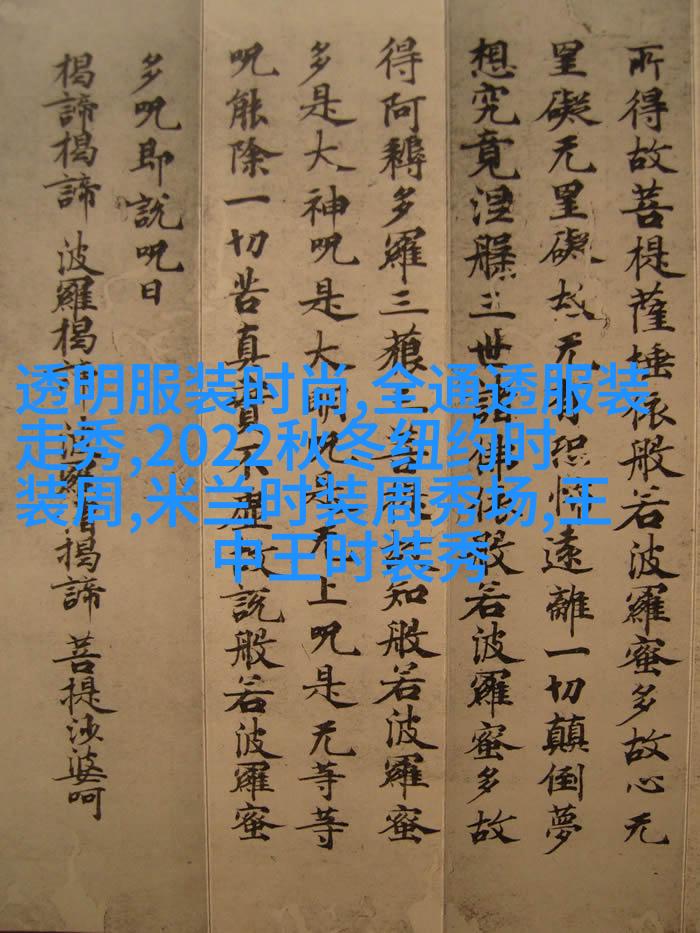 所得故菩提薩埵依般若波羅蜜多故心无
罣礙无罣礙故无有恐怖遠離一切顛倒夢
想究竟涅槃三世諸佛依般若波羅蜜多故
得阿耨多羅三藐三菩提故知般若波羅蜜
多是大神呪是大明呪是无上呪是无等等
呪能除一切苦真實不虛故說般若波羅蜜
多呪即說呪曰
揭諦揭諦 波羅揭諦 波羅僧揭諦 菩提沙婆呵
透明服装时尚,全通透服装
走秀,2022秋冬纽约时
装周,米兰时装周秀场,王
中王时装秀